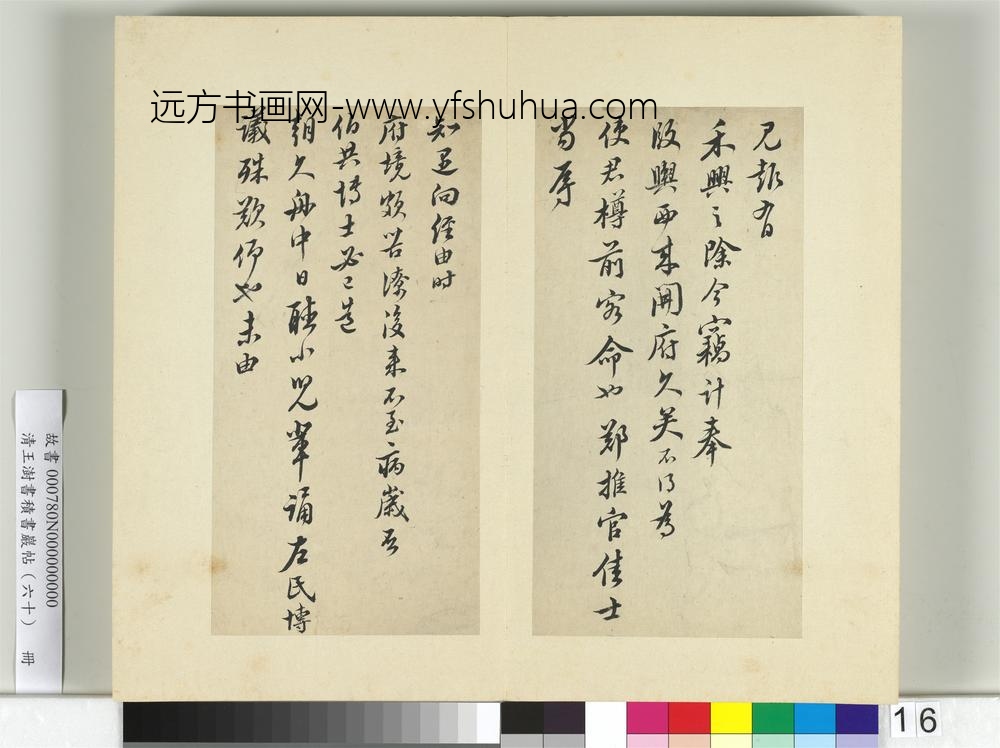 远方书画网-www.yfshuhua.com
見報有
禾興之除今竊計奉
版輿西来開府久矣不得為
使君樽前客命也鄭推官佳士
當辱
知遇向經由时
府境頗苦潦後来不至病歲否
伯共博士必已造
朝久舟中日聽小兒輩誦左氏博
議殊歎仰也未由
故書 000780N000000000
清王澍書積書巖帖(六十) 冊
16